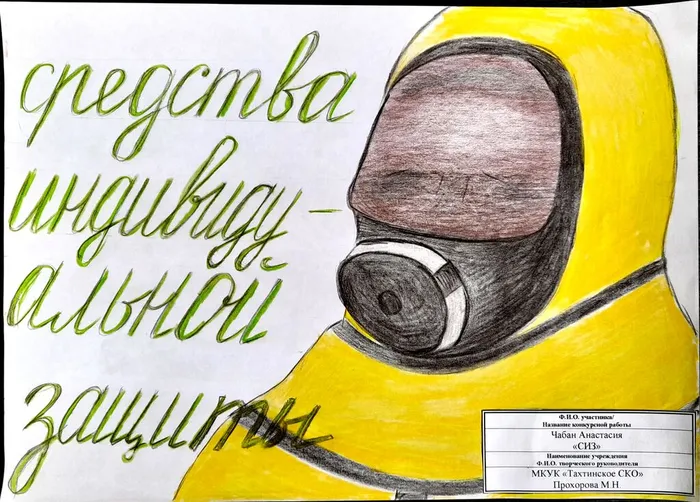 средства
индивиду-
альной
защиты
Ф.И.О. участника/
Название конкурсной работы
Чабан Анастасия
«СИЗ»
Наименование учреждения
Ф.И.О. творческого руководителя
МКУК «Тахтинское СКО»
Прохорова М.Н.